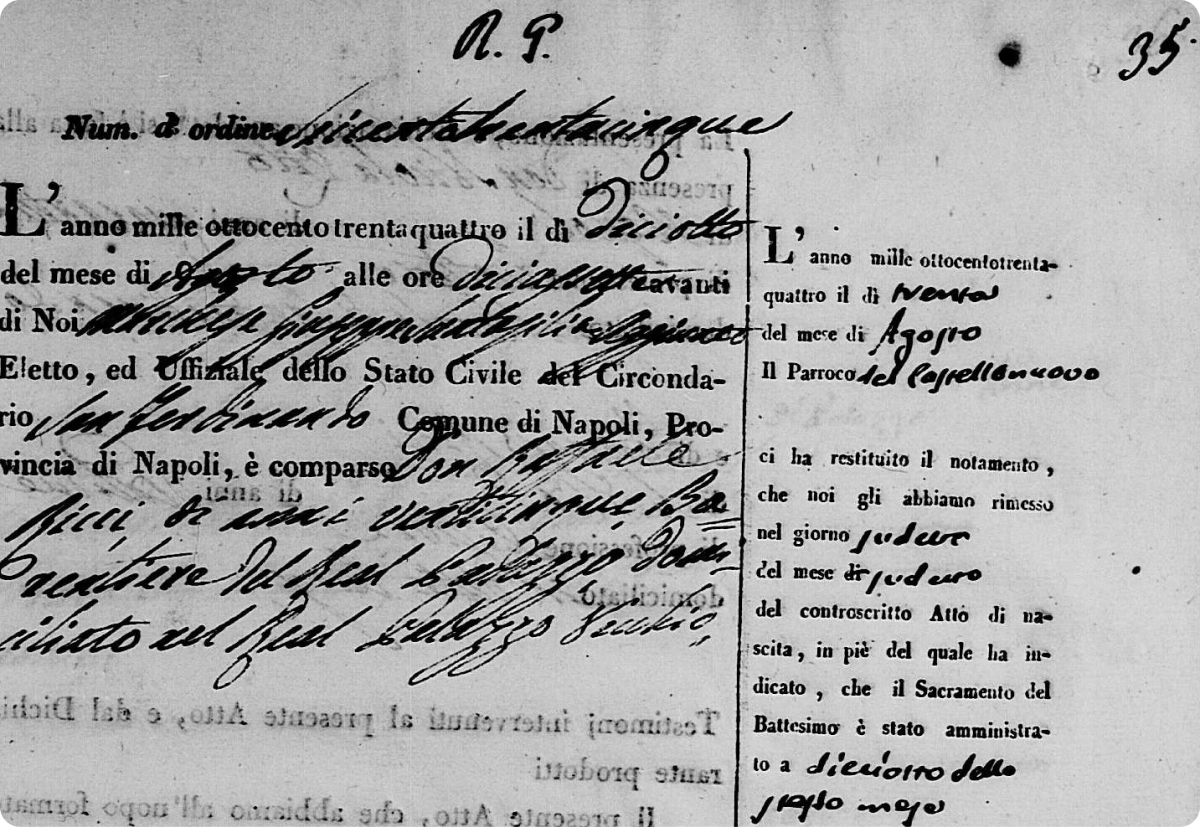 R. P.
35.
Num. d' ordine seicentotrentacinque
L'anno mille ottocento trentaquattro il dì diciotto
del mese di Agosto alle ore diciassette avanti
di Noi
Eletto, ed Uffiziale dello Stato Civile del Circonda-
rio San Ferdinando Comune di Napoli, Pro-
vincia di Napoli, è comparso Don Raffaele
Ricci, di anni venticinque Ba=
rentiere del Real Palazzo domi=
ciliato nel Real Palazzo Vecchio,
L'anno mille ottocentotrenta-
quattro il dì trenta
del mese di Agosto
Il Parroco del Castellonuovo
ci ha restituito il notamento,
che noi gli abbiamo rimesso
nel giorno sudetto
del mese di sudetto
del controscritto Atto di na-
scita, in piè del quale ha in-
dicato, che il Sacramento del
Battesimo è stato amministra-
to a diciotto dello
stesso mese